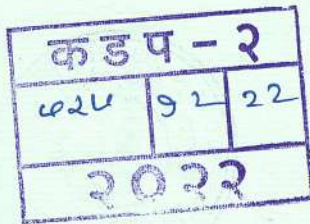 कडप - २
५२५ १२ २२
२०२२